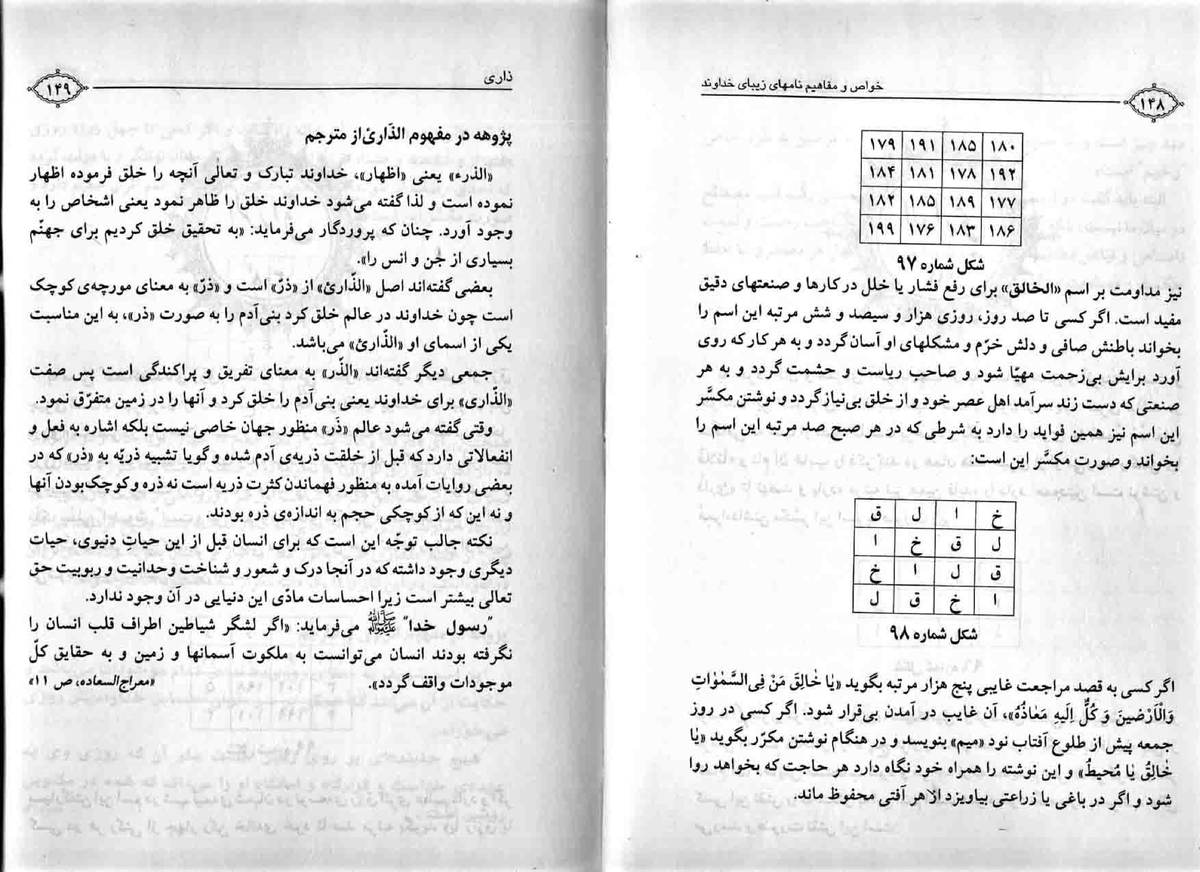 خواص و مفاهیم نامهای زیبای خداوند
۱۴۸
۱۷۹ ۱۹۱ ۱۸۵ ۱۸۰
۱۸۴ ۱۸۱ ۱۷۸ ۱۹۲
۱۸۲ ۱۸۵ ۱۸۹ ۱۷۷
۱۹۹ ۱۷۶ ۱۸۳ ۱۸۶
شکل شماره ۹۷
نیز مداومت بر اسم «الخالق» برای رفع فشار یا خلل در کارها و صنعتهای دقیق
مفید است. اگر کسی تا صد روز، روزی هزار و سیصد و شش مرتبه این اسم را
بخواند باطنش صافی و دلش خرّم و مشکلهای او آسان گردد و به هر کار که روی
آورد برایش بی‌زحمت مهیّا شود و صاحب ریاست و حشمت گردد و به هر
صنعتی که دست زند سرآمد اهل عصر خود و از خلق بی‌نیاز گردد و نوشتن مکسّر
این اسم نیز همین فواید را دارد به شرطی که در هر صبح صد مرتبه این اسم را
بخواند و صورت مکسَّر این است:
خ ا ل ق
ل ق خ ا
ق ل ا خ
ا خ ق ل
شکل شماره ۹۸
اگر کسی به قصد مراجعت غایبی پنج هزار مرتبه بگوید «یٰا خٰالِقَ مَنْ فِی السَّمٰوٰاتِ
وَالْاَرْضینَ وَ کُلٌّ اِلَیهِ مَعٰاذُهُ»، آن غایب در آمدن بی‌قرار شود. اگر کسی در روز
جمعه پیش از طلوع آفتاب نود «میم» بنویسد و در هنگام نوشتن مکرّر بگوید «یٰا
خٰالِقُ یٰا مُحیطُ» و این نوشته را همراه خود نگاه دارد هر حاجت که بخواهد روا
شود و اگر در باغی یا زراعتی بیاویزد از هر آفتی محفوظ ماند.
ذاری
۱۴۹
پژوهه در مفهوم الذّاریٔ از مترجم
«الذرء» یعنی «اظهار»، خداوند تبارک و تعالی آنچه را خلق فرموده اظهار
نموده است و لذا گفته می‌شود خداوند خلق را ظاهر نمود یعنی اشخاص را به
وجود آورد. چنان که پروردگار می‌فرماید: «به تحقیق خلق کردیم برای جهنّم
بسیاری از جن و انس را».
بعضی گفته‌اند اصل «الذّاریٔ» از «ذرّ» است و «ذرّ» به معنای مورچه‌ی کوچک
است چون خداوند در عالم خلق کرد بنی‌آدم را به صورت «ذر»، به این مناسبت
یکی از اسمای او «الذّاریٔ» می‌باشد.
جمعی دیگر گفته‌اند «الذّر» به معنای تفریق و پراکندگی است پس صفت
«الذّاری» برای خداوند یعنی بنی‌آدم را خلق کرد و آنها را در زمین متفرّق نمود.
وقتی گفته می‌شود عالم «ذّر» منظور جهان خاصی نیست بلکه اشاره به فعل و
انفعالاتی دارد که قبل از خلقت ذریه‌ی آدم شده و گویا تشبیه ذریّه به «ذر» که در
بعضی روایات آمده به منظور فهماندن کثرت ذریه است نه ذره و کوچک‌بودن آنها
و نه این که از کوچکی حجم به اندازه‌ی ذره بودند.
نکته جالب توجّه این است که برای انسان قبل از این حیاتِ دنیوی، حیات
دیگری وجود داشته که در آنجا درک و شعور و شناخت وحدانیت و ربوبیت حق
تعالی بیشتر است زیرا احساسات مادّی این دنیایی در آن وجود ندارد.
"رسول خدا" ﷺ می‌فرماید: «اگر لشگر شیاطین اطراف قلب انسان را
نگرفته بودند انسان می‌توانست به ملکوت آسمانها و زمین و به حقایق کلّ
موجودات واقف گردد». «معراج‌السعاده، ص ۱۱»